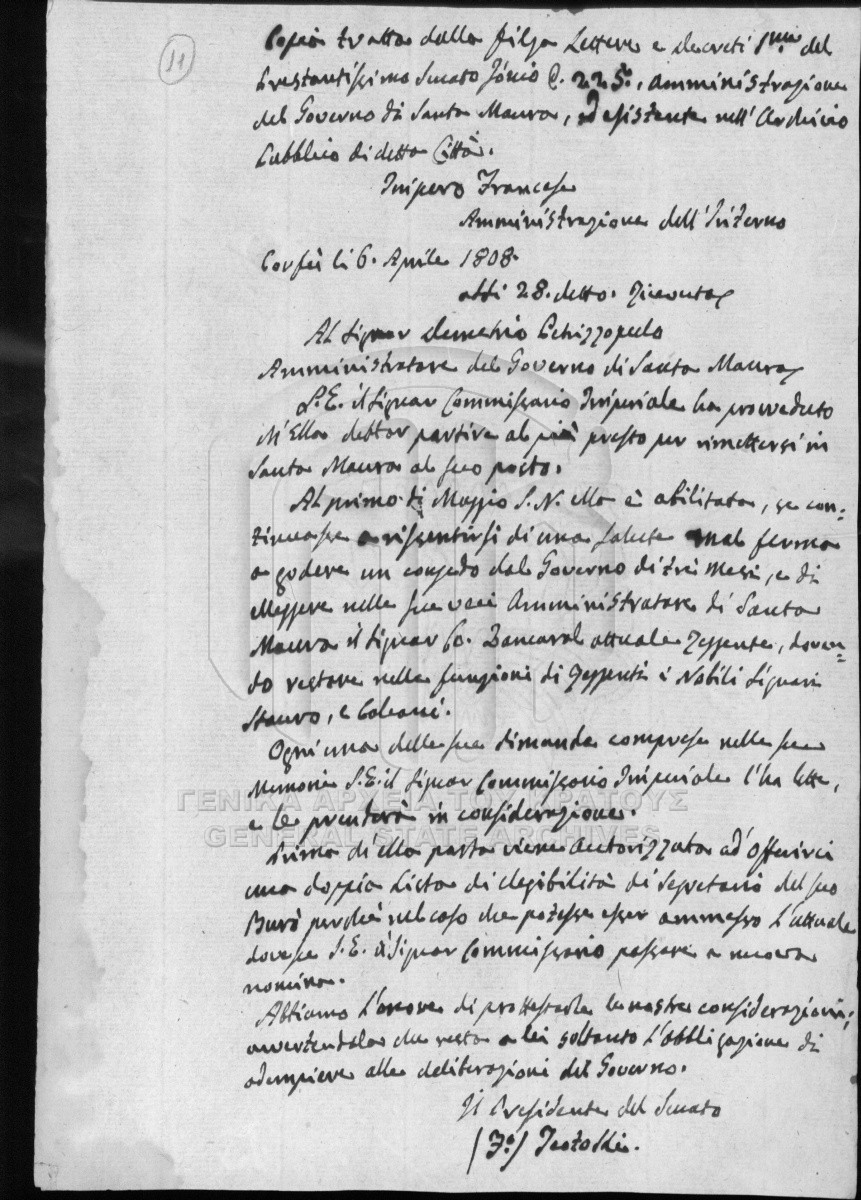 11
Copia tratta dalla filza Lettere e Decreti Pmo del
Prestantissimo Senato Jonio C. 225., Amministrazione
del Governo di Santa Maura, esistente nell'Archivio
Pubblico di detta Città.
Impero Francese
Amministrazione dell'Interno
Corfù li 6. Aprile 1808.
alli 28. detto. Ricevuta
Al Signor Demetrio Petrizzopulo
Amministratore del Governo di Santa Maura
S.E. il Signor Commissario Imperiale ha provveduto
ch'Ella debba partire al più presto per rimettersi in
Santa Maura al suo posto.
Al primo di Maggio S.N. ella è abilitata, se con-
tinuasse a rissentirsi di una salute mal ferma
a godere un congedo dal Governo di tre mesi, e di
eleggere nelle sue veci Amministratore di Santa
Maura il Signor Co. attuale Reggente, doven-
do restare nelle funzioni di Reggenti i Nobili Signori
Stauro, e
Ogni una delle sue dimande comprese nelle sue
Memorie S.E. il Signor Commissario Imperiale l'ha lette,
e le prenderà in considerazione.
Prima ch'ella parta viene autorizzata ad'offrirci
una doppia Lista di eleggibilità di Segretario del suo
Burò perchè nel caso che potesse esser ammesso l'attuale
dovesse S.E. il Signor Commissario passare a nuova
nomina.
Abbiamo l'onore di prottestarle le nostre considerazioni;
avvertendola che resta a lei soltanto l'obbligazione di
adempiere alle deliberazioni del Governo.
Il Presidente del Senato
(Fo) Teotochi.
ΓΕΝΙΚΑ ΑΡΧΕΙΑ ΤΟΥ ΚΡΑΤΟΥΣ
GENERAL STATE ARCHIVES